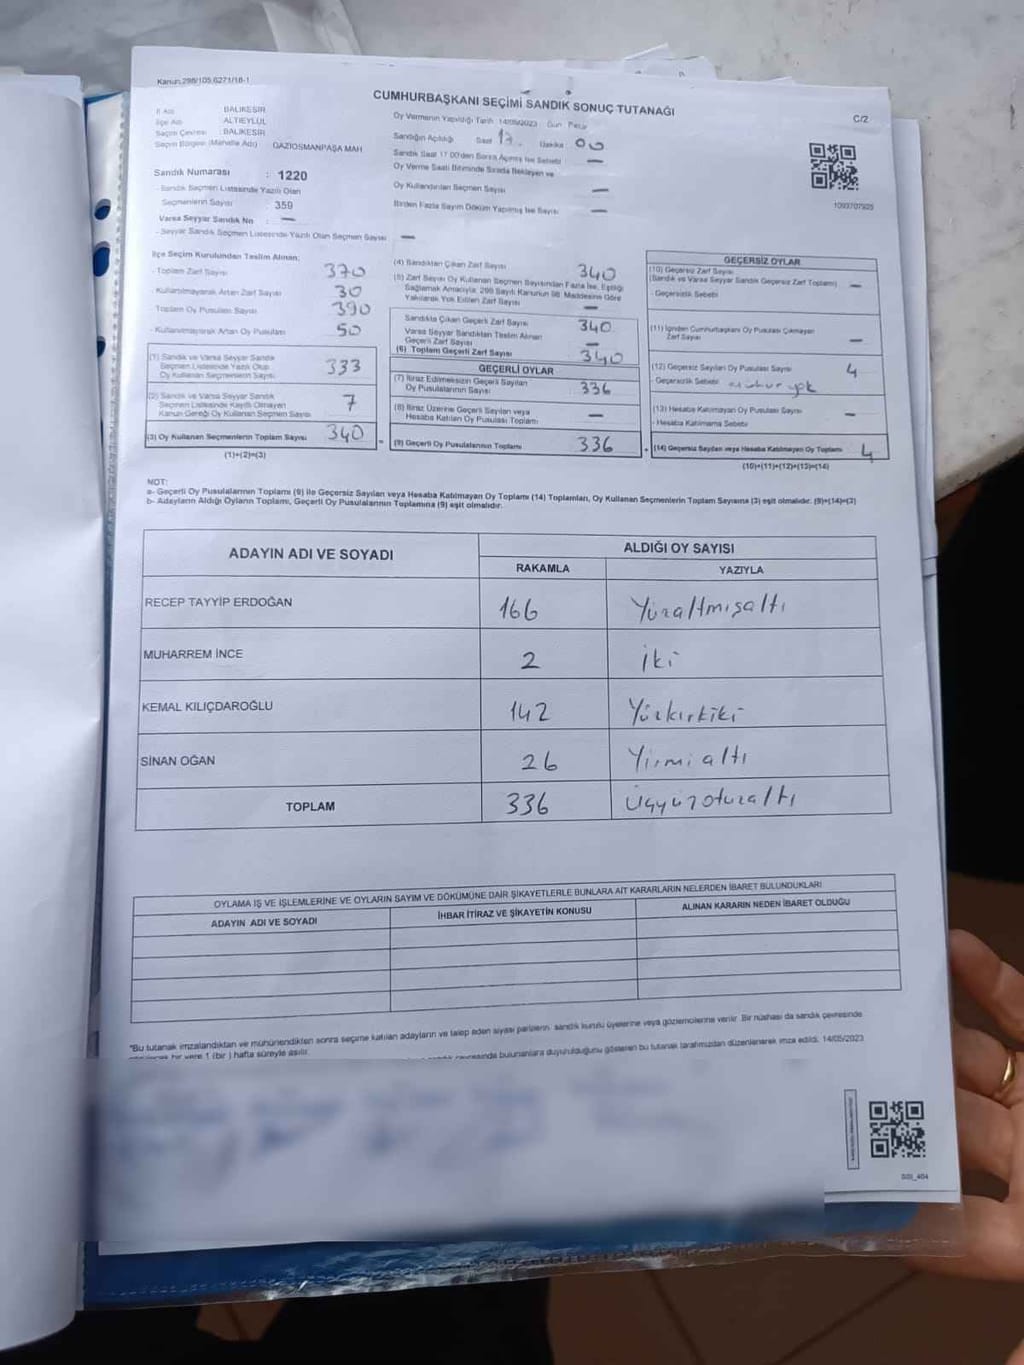 Kanun.298/105,6271/18-1
CUMHURBAŞKANI SEÇİMİ SANDIK SONUÇ TUTANAĞI
C/2
İl Adı BALIKESİR
İlçe Adı ALTIEYLÜL
Seçim Çevresi : BALIKESİR
Seçim Bölgesi (Mahalle Adı) GAZİOSMANPAŞA MAH
Sandık Numarası : 1220
- Sandık Seçmen Listesinde Yazılı Olan
Seçmenlerin Sayısı : 359
Varsa Seyyar Sandık No : —
- Seyyar Sandık Seçmen Listesinde Yazılı Olan Seçmen Sayısı —
Oy Vermenin Yapıldığı Tarih 14/05/2023 Gün Pazar
Sandığın Açıldığı Saat 17. Dakika 00
Sandık Saat 17.00'den Sonra Açılmış İse Sebebi —
Oy Verme Saati Bitiminde Sırada Bekleyen ve
Oy Kullandırılan Seçmen Sayısı —
Birden Fazla Sayım Döküm Yapılmış İse Sayısı —
1093707925
İlçe Seçim Kurulundan Teslim Alınan;
- Toplam Zarf Sayısı 370
- Kullanılmayarak Artan Zarf Sayısı 30
Toplam Oy Pusulası Sayısı 390
- Kullanılmayarak Artan Oy Pusulası 50
(1) Sandık ve Varsa Seyyar Sandık
Seçmen Listesinde Yazılı Olup
Oy Kullanan Seçmenlerin Sayısı 333
(2) Sandık ve Varsa Seyyar Sandık
Seçmen Listesinde Kayıtlı Olmayan
Kanun Gereği Oy Kullanan Seçmen Sayısı 7
(3) Oy Kullanan Seçmenlerin Toplam Sayısı 340 =
(1)+(2)=(3)
(4) Sandıktan Çıkan Zarf Sayısı 340
(5) Zarf Sayısı Oy Kullanan Seçmen Sayısından Fazla İse, Eşitliği
Sağlamak Amacıyla; 298 Sayılı Kanunun 98. Maddesine Göre
Yakılarak Yok Edilen Zarf Sayısı —
Sandıkta Çıkan Geçerli Zarf Sayısı 340
Varsa Seyyar Sandıktan Teslim Alınan
Geçerli Zarf Sayısı —
(6) Toplam Geçerli Zarf Sayısı 340
GEÇERLİ OYLAR
(7) İtiraz Edilmeksizin Geçerli Sayılan
Oy Pusulalarının Sayısı 336
(8) İtiraz Üzerine Geçerli Sayılan veya
Hesaba Katılan Oy Pusulası Toplamı —
(9) Geçerli Oy Pusulalarının Toplamı 336
GEÇERSİZ OYLAR
(10) Geçersiz Zarf Sayısı
(Sandık ve Varsa Seyyar Sandık Geçersiz Zarf Toplamı) —
- Geçersizlik Sebebi
(11) İçinden Cumhurbaşkanı Oy Pusulası Çıkmayan
Zarf Sayısı —
(12) Geçersiz Sayılan Oy Pusulası Sayısı 4
- Geçersizlik Sebebi mühür yok
(13) Hesaba Katılmayan Oy Pusulası Sayısı —
- Hesaba Katılmama Sebebi
(14) Geçersiz Sayılan veya Hesaba Katılmayan Oy Toplamı 4
(10)+(11)+(12)+(13)=(14)
NOT:
a- Geçerli Oy Pusulalarının Toplamı (9) ile Geçersiz Sayılan veya Hesaba Katılmayan Oy Toplamı (14) Toplamları, Oy Kullanan Seçmenlerin Toplam Sayısına (3) eşit olmalıdır. (9)+(14)=(3)
b- Adayların Aldığı Oyların Toplamı, Geçerli Oy Pusulalarının Toplamına (9) eşit olmalıdır.
ADAYIN ADI VE SOYADI
ALDIĞI OY SAYISI
RAKAMLA YAZIYLA
RECEP TAYYİP ERDOĞAN 166 Yüzaltmışaltı
MUHARREM İNCE 2 İki
KEMAL KILIÇDAROĞLU 142 Yüzkırkiki
SİNAN OĞAN 26 Yirmi altı
TOPLAM 336 Üçyüzotuzaltı
OYLAMA İŞ VE İŞLEMLERİNE VE OYLARIN SAYIM VE DÖKÜMÜNE DAİR ŞİKAYETLERLE BUNLARA AİT KARARLARIN NELERDEN İBARET BULUNDUKLARI
ADAYIN ADI VE SOYADI
İHBAR İTİRAZ VE ŞİKAYETİN KONUSU
ALINAN KARARIN NEDEN İBARET OLDUĞU
"Bu tutanak imzalandıktan ve mühürlendikten sonra seçime katılan adayların ve talep eden siyasi partilerin sandık kurulu üyelerine veya gözlemcilerine verilir. Bir nüshası da sandık çevresinde
bir yere 1 (bir ) hafta süreyle asılır.
sandık çevresinde bulunanlara duyurulduğunu gösteren bu tutanak tarafımızdan düzenlenerek imza edildi. 14/05/2023